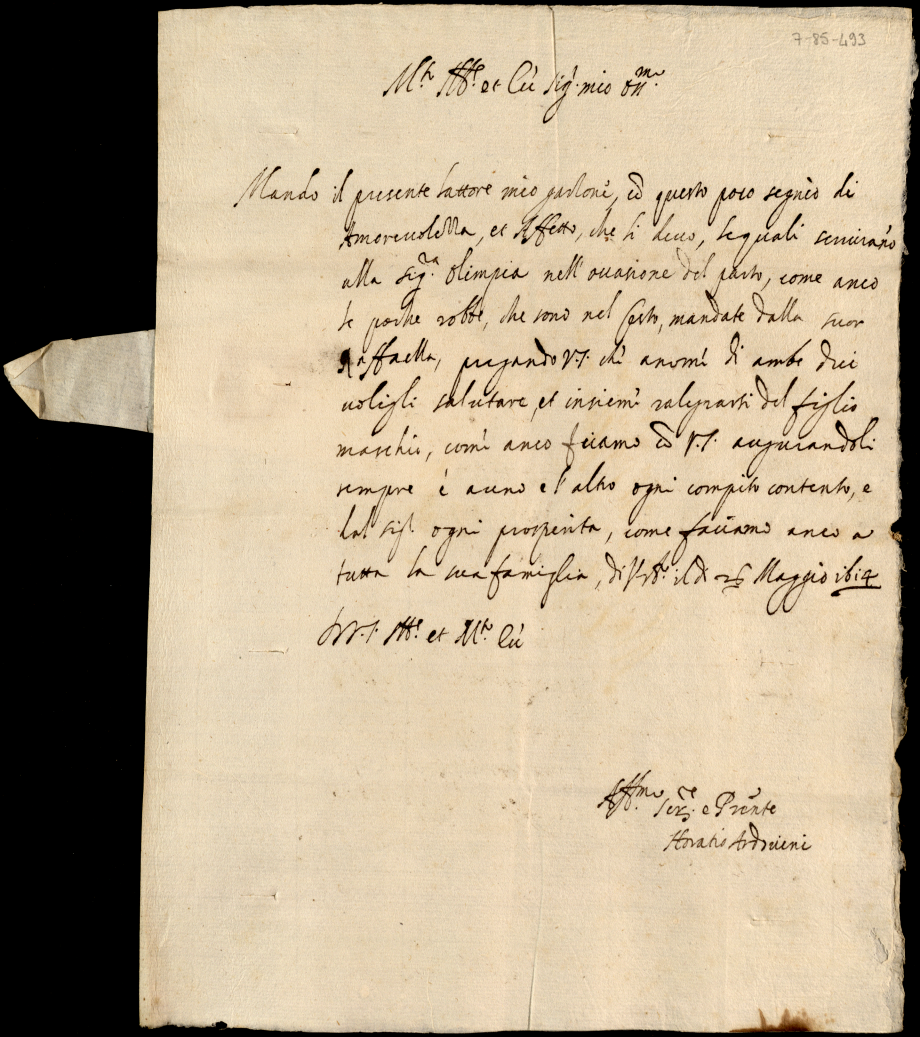 7-85-493
M.to Ill.e et Ecc. Sig.r mio oss.mo
Mando il presente lattore mio garzone, cõ questo poco segnio di
Amorevolezza, et Affetto, che si deve, le quali serviranno
alla sig.ra Olimpia nell'occasione del parto, come anco
le poche robbe, che sono nel Cesto, mandate dalla suor
Raffaella, pregando V.S. ch'è a nomi di ambe dui
vogli salutare, et insiemi ralegrarsi del figlio
maschio, comi anco faciamo cõ V.S. augurandoli
sempre è a uno e l'altro ogni compito contento, e
dal sig.r ogni prosperita, come faciamo anco a
tutta la sua famiglia, di il di 25 Maggio 1614
D. V.S. Ill.e et M.to Ecc.
Aff.mo Ser.re e Parente
Horatio Arduini